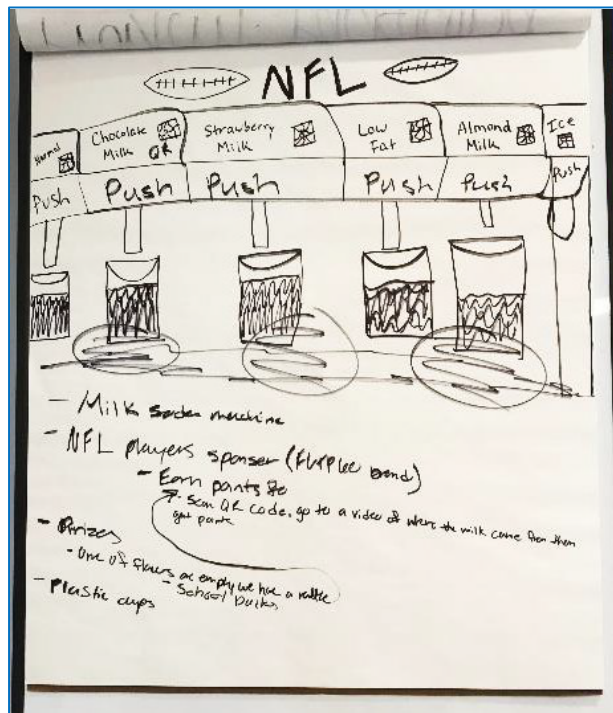 NFL
Normal
Chocolate Milk QR
Strawberry Milk
Low Fat
Almond Milk
Ice
Push Push Push Push Push Push
- Milk machine
- NFL players sponser (
- Earn points
- Scan QR code, go to a video of where the milk came from then
get points
- Prizes
- One of flavors are empty we have a
- School
- Plastic cups